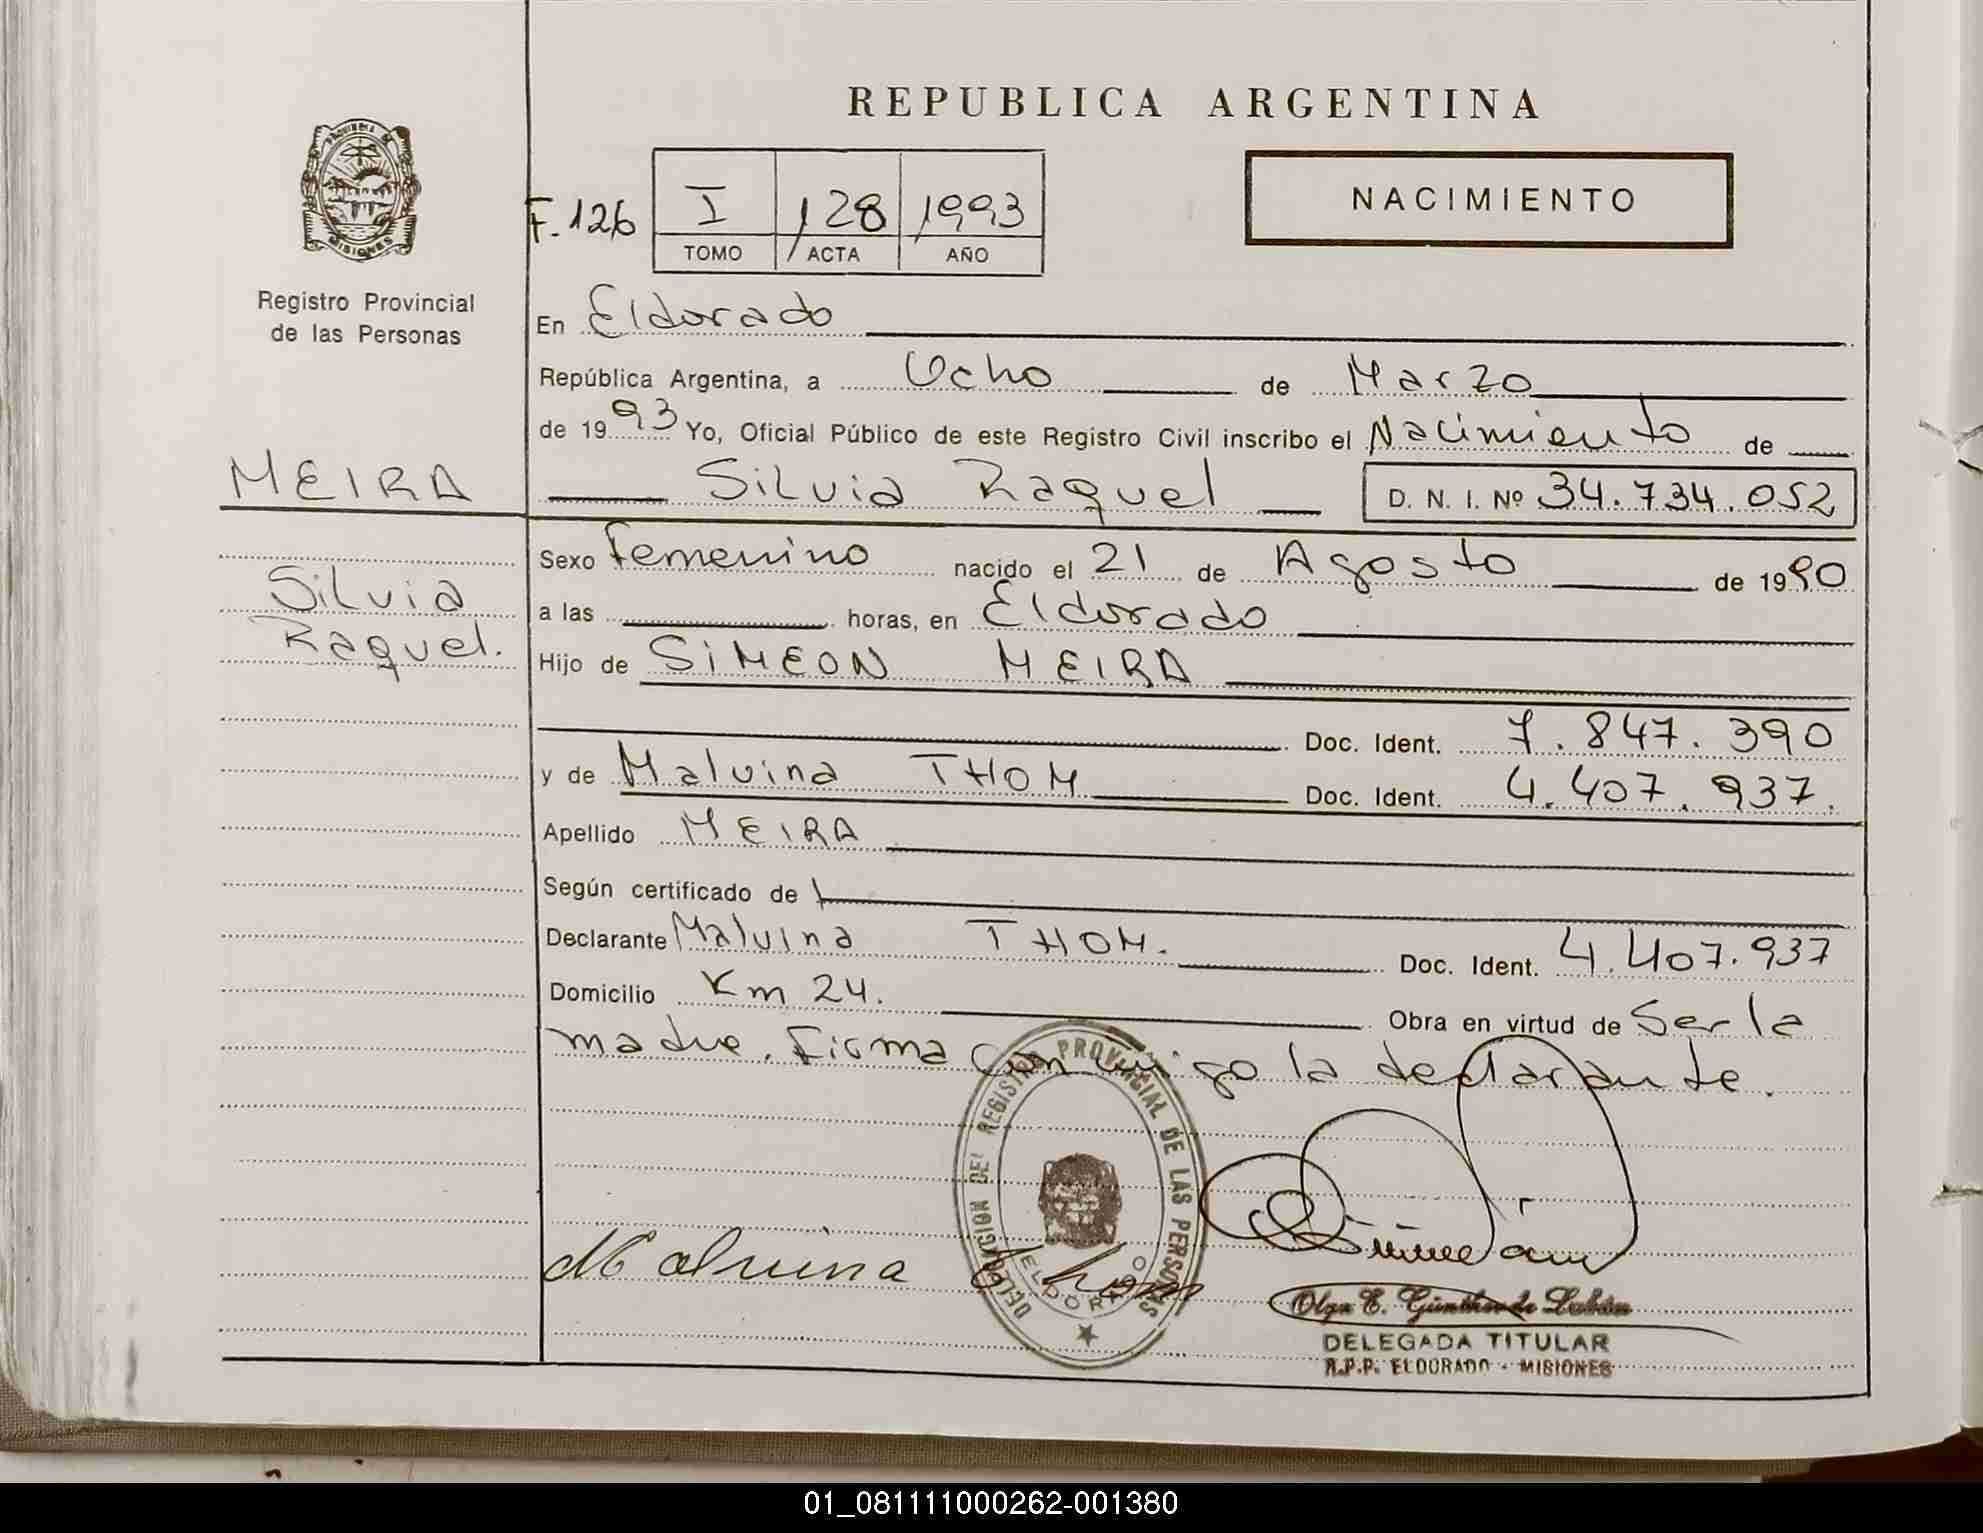 REPUBLICA ARGENTINA
PROVINCIA DE
MISIONES
Registro Provincial
de las Personas
F. 126
I 128 1993
TOMO ACTA AÑO
NACIMIENTO
En Eldorado
República Argentina, a Ocho de Marzo
de 1993 Yo, Oficial Público de este Registro Civil inscribo el Nacimiento de
MEIRA
Silvia Raquel D. N. I. Nº 34.734.052
Sexo Femenino nacido el 21 de Agosto de 1990
Silvia
Raquel.
a las horas, en Eldorado
Hijo de SIMEON MEIRA
Doc. Ident. 7.847.390
y de Malvina THOM Doc. Ident. 4.407.937.
Apellido MEIRA
Según certificado de
Declarante Malvina THOM. Doc. Ident. 4.407.937
Domicilio Km 24. Obra en virtud de Ser la
madre. Firma conmigo la declarante.
DELEGACION DEL REGISTRO PROVINCIAL DE LAS PERSONAS
ELDORADO
Malvina Thom
Olga E. Günther de
DELEGADA TITULAR
R.P.P. ELDORADO - MISIONES
01_081111000262-001380